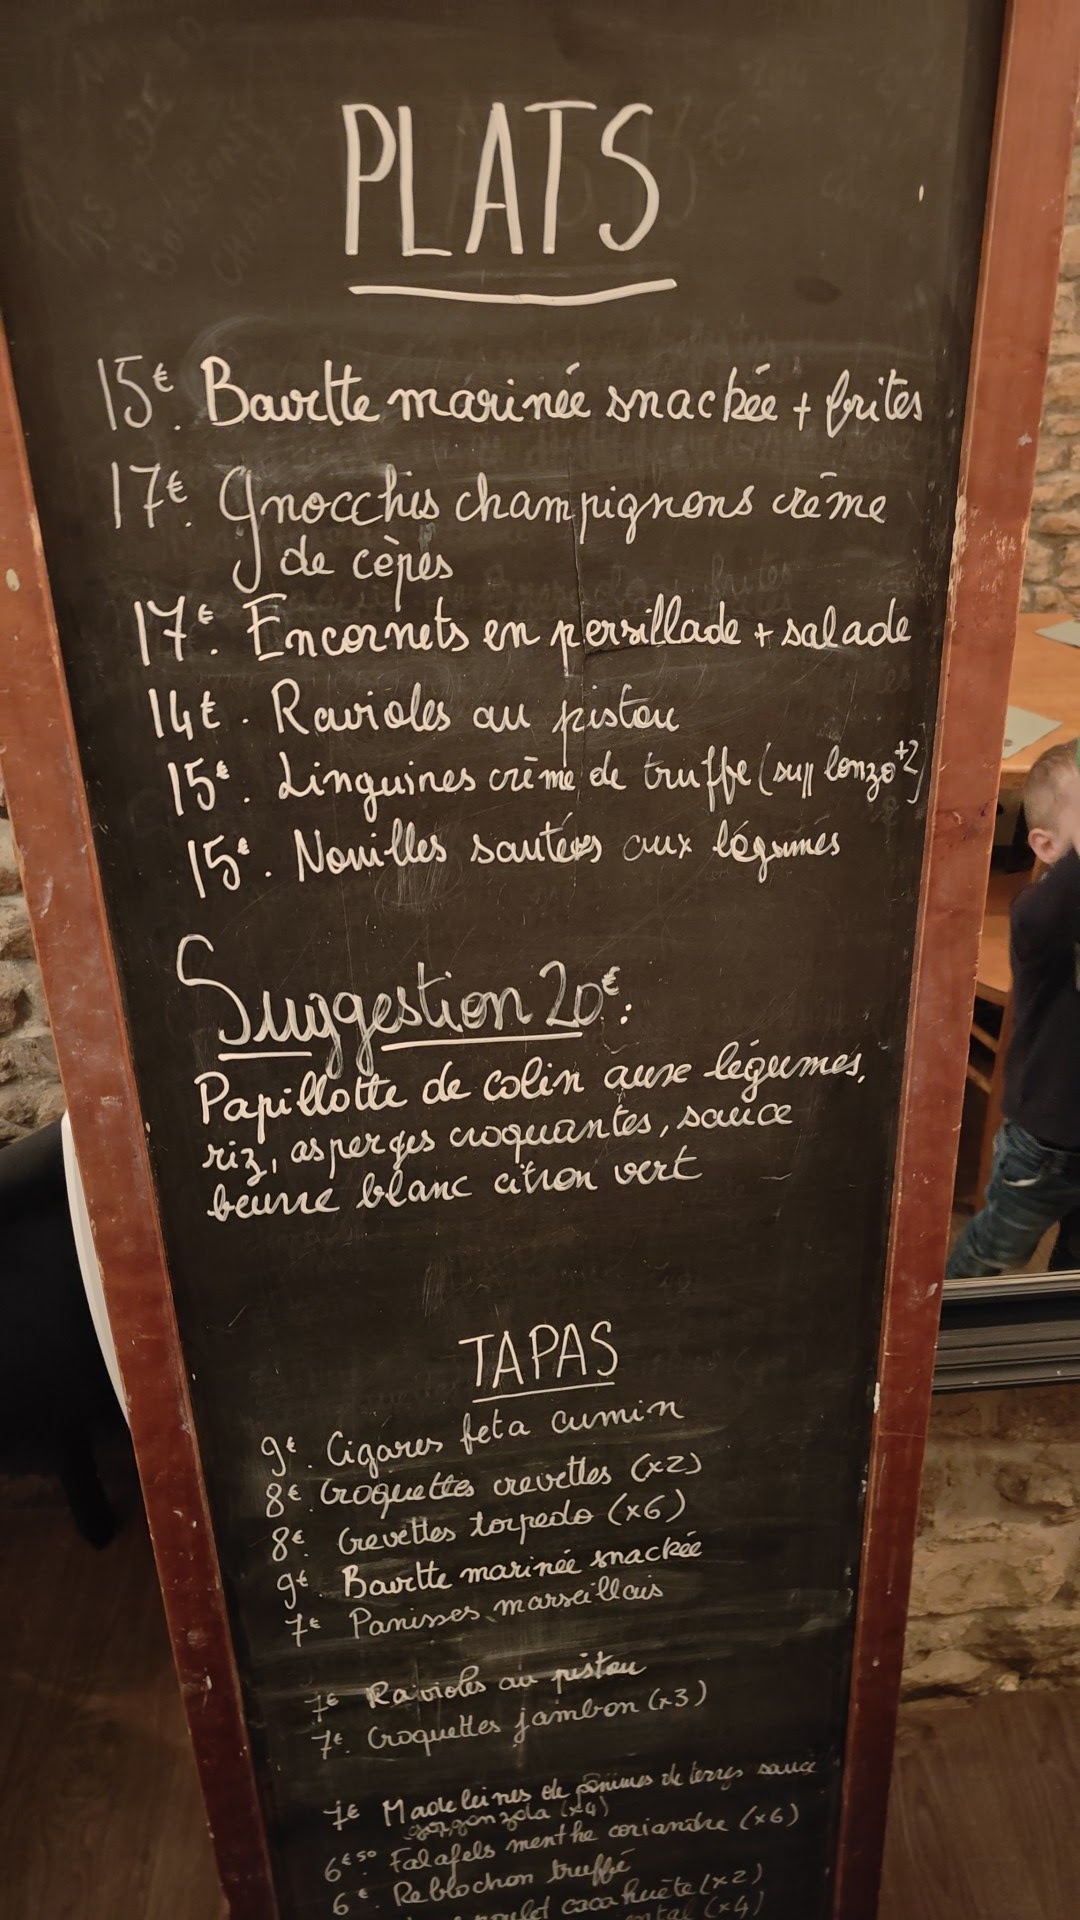 PLATS
15€. Bavette marinée snackée + frites
17€. Gnocchis champignons crème
de cèpes
17€. Encornets en persillade + salade
14€. Ravioles au pistou
15€. Linguines crème de truffe (sup lonzo +2)
15€. Nouilles sautées aux légumes
Suggestion 20€:
Papillotte de colin aux légumes,
riz, asperges croquantes, sauce
beurre blanc citron vert
TAPAS
9€. Cigares feta cumin
8€. Croquettes crevettes (x2)
8€. Crevettes torpedo (x6)
9€. Bavette marinée snackée
7€ Panisses marseillais
7€ Ravioles au pistou
7€. Croquettes jambon (x3)
7€ Madeleines de pommes de terres sauce
gorgonzola (x4)
6€50. Falafels menthe coriandre (x6)
6€. Reblochon truffé
poulet cacahuète (x2)
(x4)